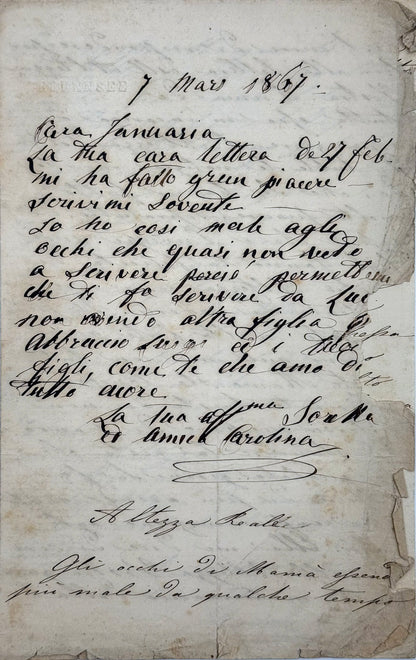 7 Mars 1867.
Cara Januaria
La tua cara lettera de 27 Feb.
mi ha fatto gran piacere
scrivimi sovente
Io ho così male agli
occhi che quasi non vedo
a scrivere perciò
che ti fo scrivere da Lui
non altra figlia
Abbraccio Luigi ed i tuoi
figli, come te che amo di
tutto cuore
La tua affma Sorella
ed amica Carolina
Altezza Reale
Gli occhi di Mamà essend
più male da qualche tempo